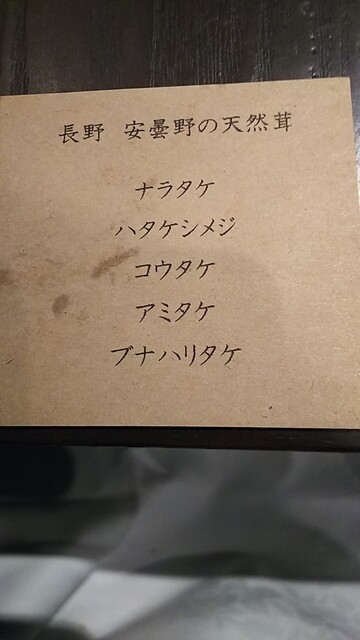 長野 安曇野の天然茸
ナラタケ
ハタケシメジ
コウタケ
アミタケ
ブナハリタケ